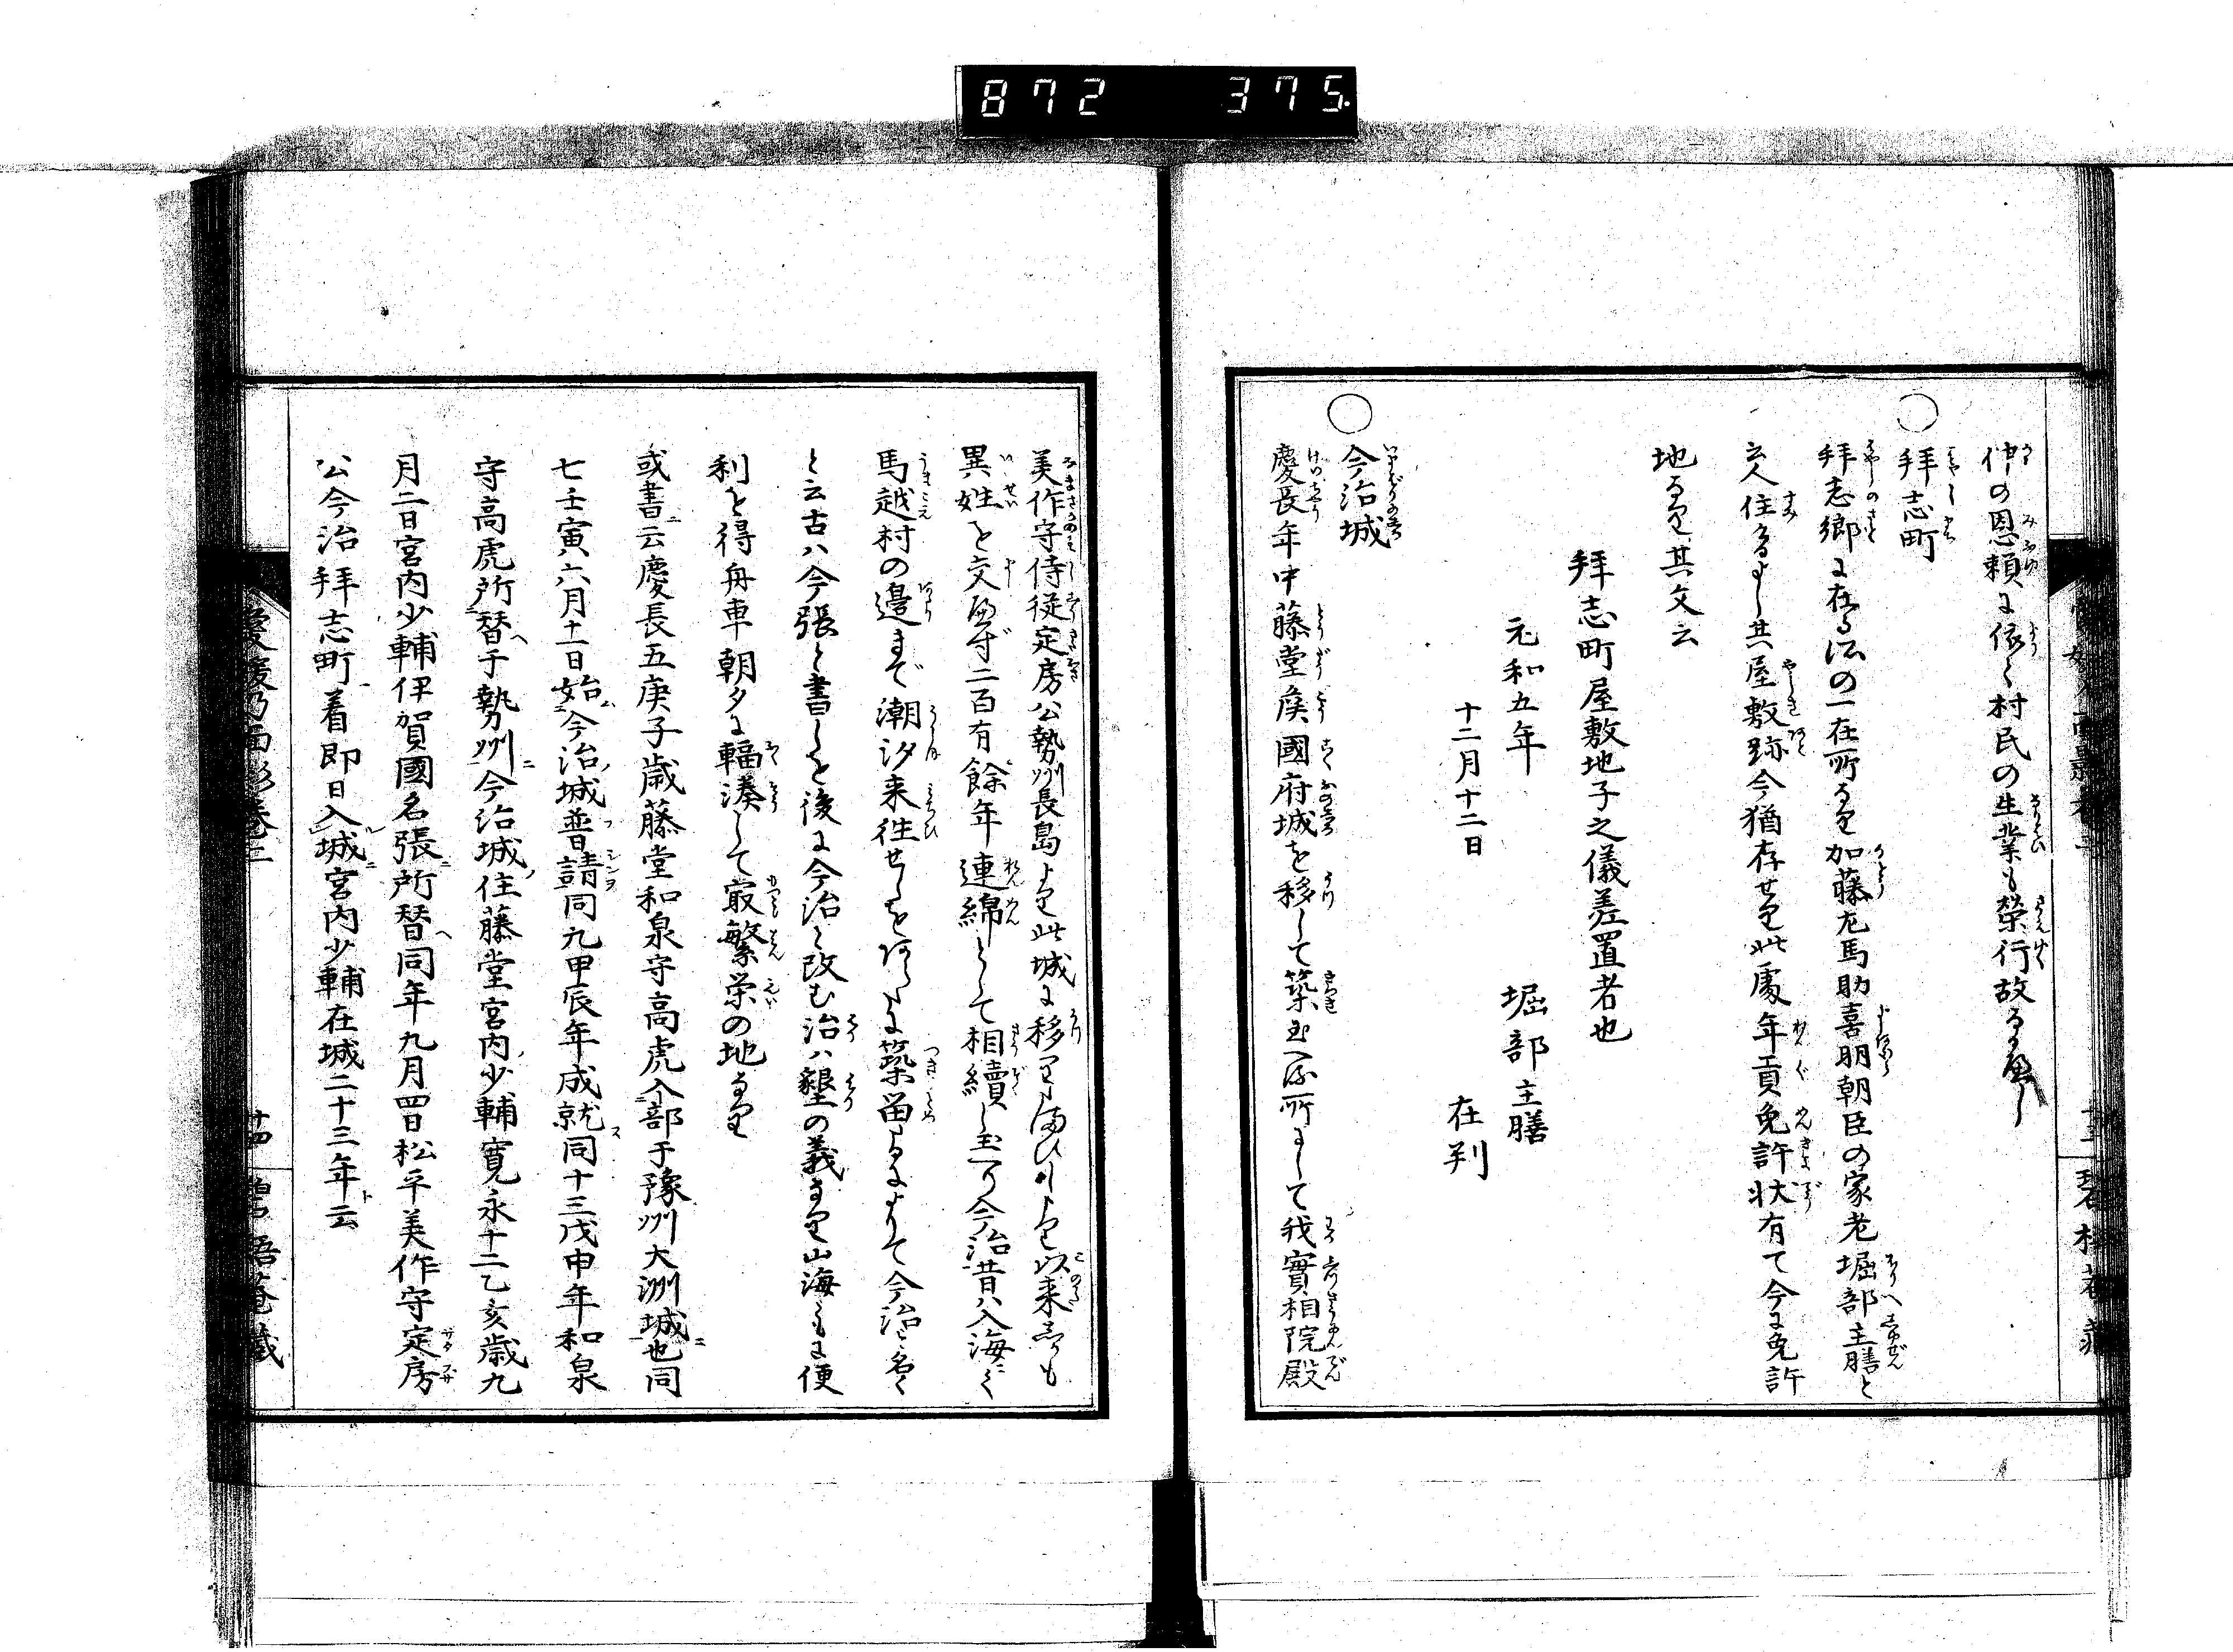 872 375.
神の恩頼に依て村民の生業も栄行故なるべし
拝志町
拝志郷に在る江の一在所なり加藤左馬助喜明朝臣の家老堀部主膳と
云人住るよし其屋敷跡今猶存せり此處年貢免許状有て今に免許
地なり其文云
拝志町屋敷地子之儀差置者也
元和五年 堀部主膳
十二月十二日 在判
今治城
慶長年中藤堂侯國府城を移して築玉へる所にして我實相院殿
美作守侍従定房公勢州長島より此城に移り玉ひしより以来しも
異姓を交へず二百有餘年連綿として相續し玉へり今治昔ハ入海にて
馬越村の邊まで潮汐来往せしを築留るによりて今治と名く
と云古ハ今張と書しを後に今治と改む治ハ墾の義なり山海ともに便
利を得舟車朝夕に輻湊して最繁栄の地なり
或書ニ云慶長五庚子歳藤堂和泉守高虎入部于豫州大洲城ニ也同
七壬寅六月十一日始ム今治ノ城普請ヲ同九甲辰年成就ス同十三戊申年和泉
守高虎所替ヘ于勢州ニ今治城ノ住藤堂宮内少輔寛永十二乙亥歳九
月二日宮内少輔伊賀國名張ニ所替ヘ同年九月四日松平美作守定房
公今治拝志町着即日入城ニ宮内少輔在城二十三年ト云
愛媛乃面影巻二
廿四
碧梧菴蔵